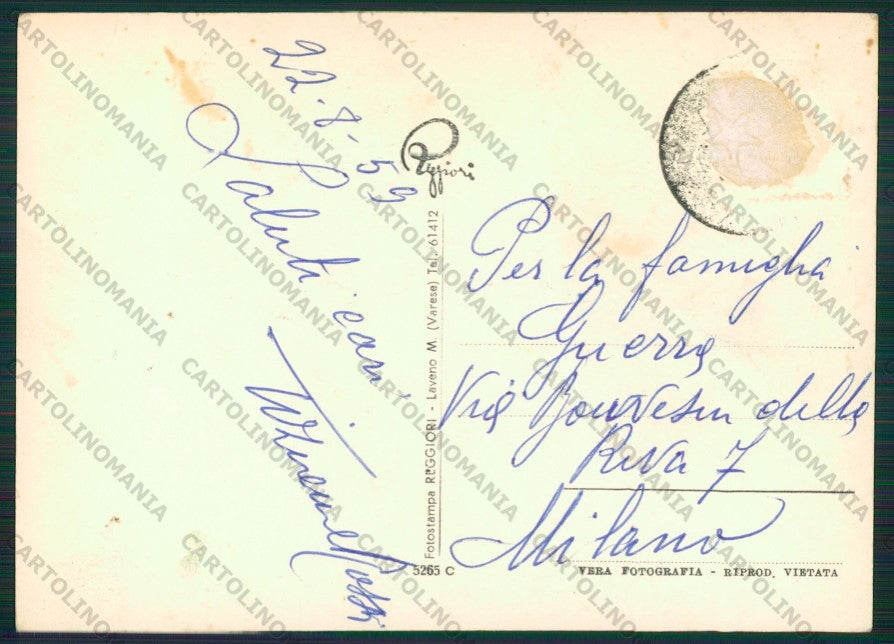 22-8-59
Saluti cari
Rossi
Reggiori
Fotostampa REGGIORI - Laveno M. (Varese) Tel. 61412
5265 C
Per la famiglia
Guerra
Via Bonvesin della
Riva 7
Milano
VERA FOTOGRAFIA - RIPROD. VIETATA
CARTOLINOMANIA